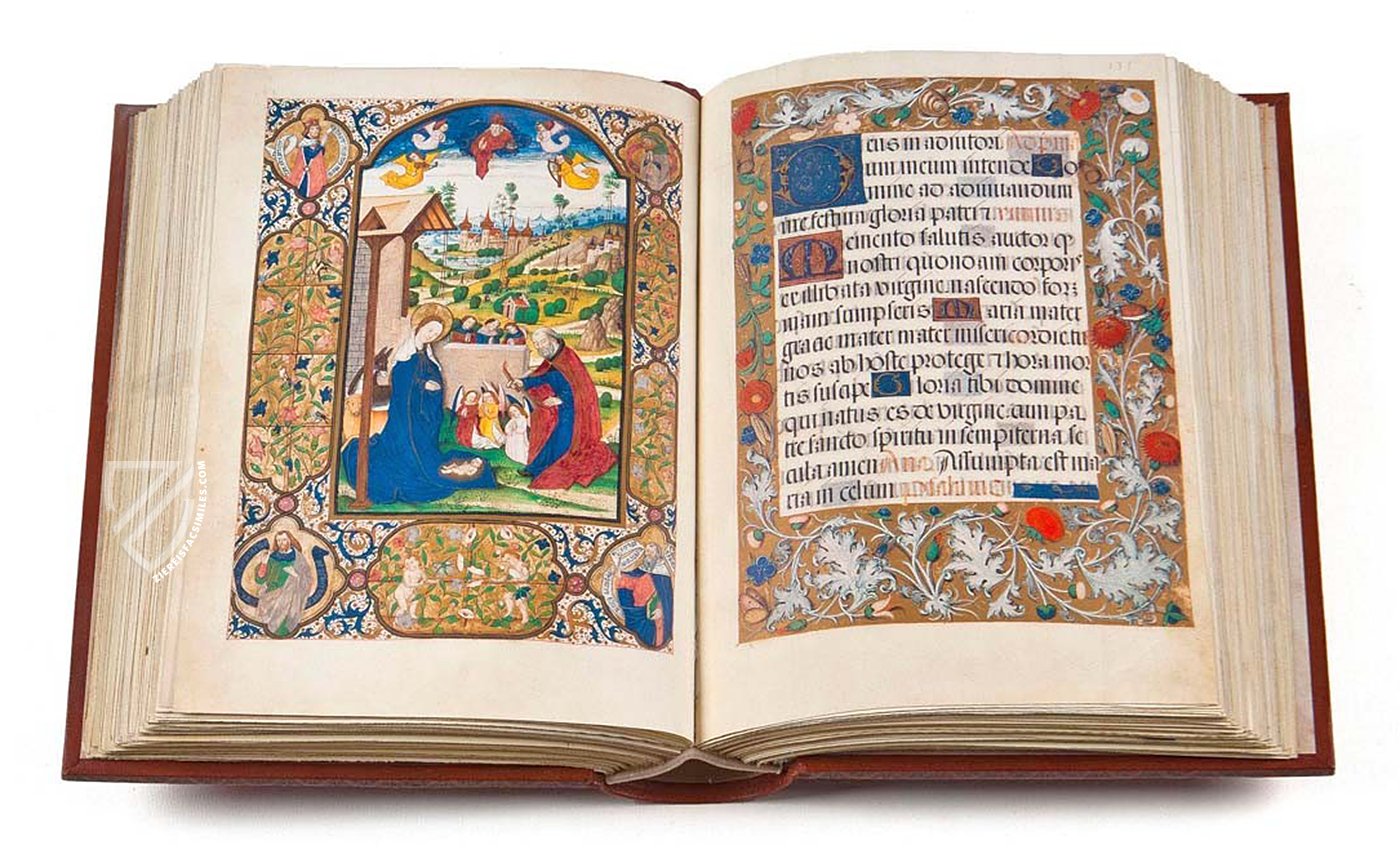 ZIEREISFACSIMILES.COM
131
Deus in adiutori Ad prima
um meum intende Do
mine ad adiuuandum
me festina gloria patri
Memento salutis auctor q
nostri quondam corporis
ex illibata virgine nascendo for
mam sumpseris Maria mater
gracie mater misericordie tu
nos ab hoste protege hora mor
tis suscipe Gloria tibi domine
qui natus es de virgine cum pa
tre sancto spiritu in sempiterna se
cula amen Assumpta est ma
ria in celum